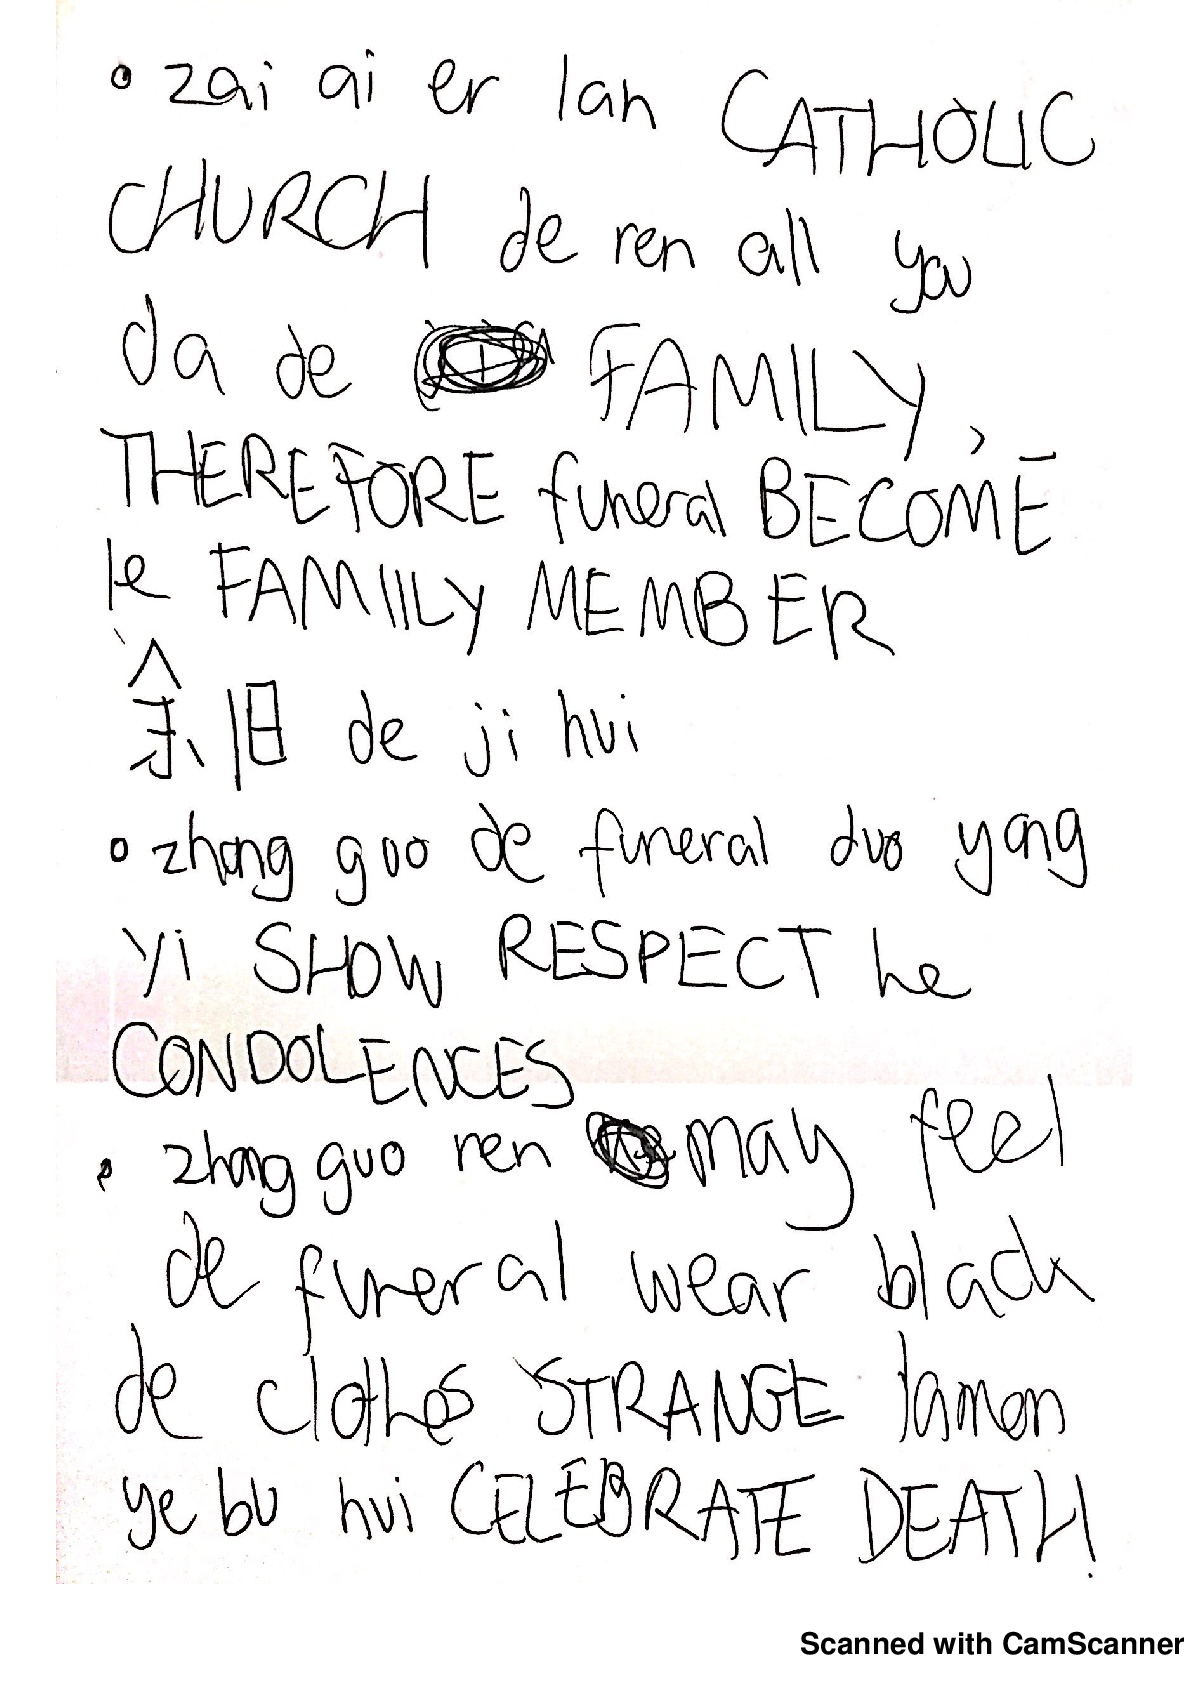 • zai ai er lan CATHOLIC
CHURCH de ren all you
da de FAMILY,
THEREFORE funeral BECOME
le FAMIILY MEMBER
旧 de ji hui
• zhong guo de funeral duo yang
yi SHOW RESPECT he
CONDOLENCES
• zhong guo ren may feel
de funeral wear black
de clothes STRANGE tamen
ye bu hui CELEBRATE DEATH!
Scanned with CamScanner